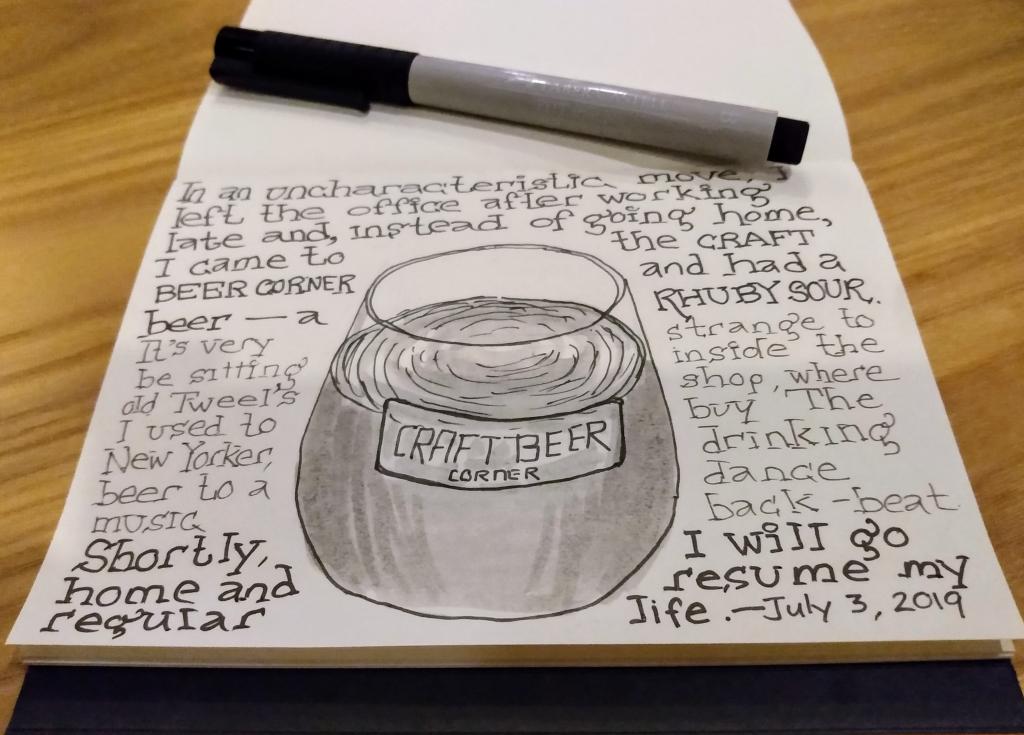 In an uncharacteristic move, I
left the office after working
late and, instead of going home,
I came to the CRAFT
BEER CORNER and had a
beer — a RHUBY SOUR.
It's very strange to
be sitting inside the
old Tweel's shop, where
I used to buy The
New Yorker, drinking
beer to a dance
music back-beat.
Shortly, I will go
home and resume my
regular life. —July 3, 2019
CRAFT BEER
CORNER